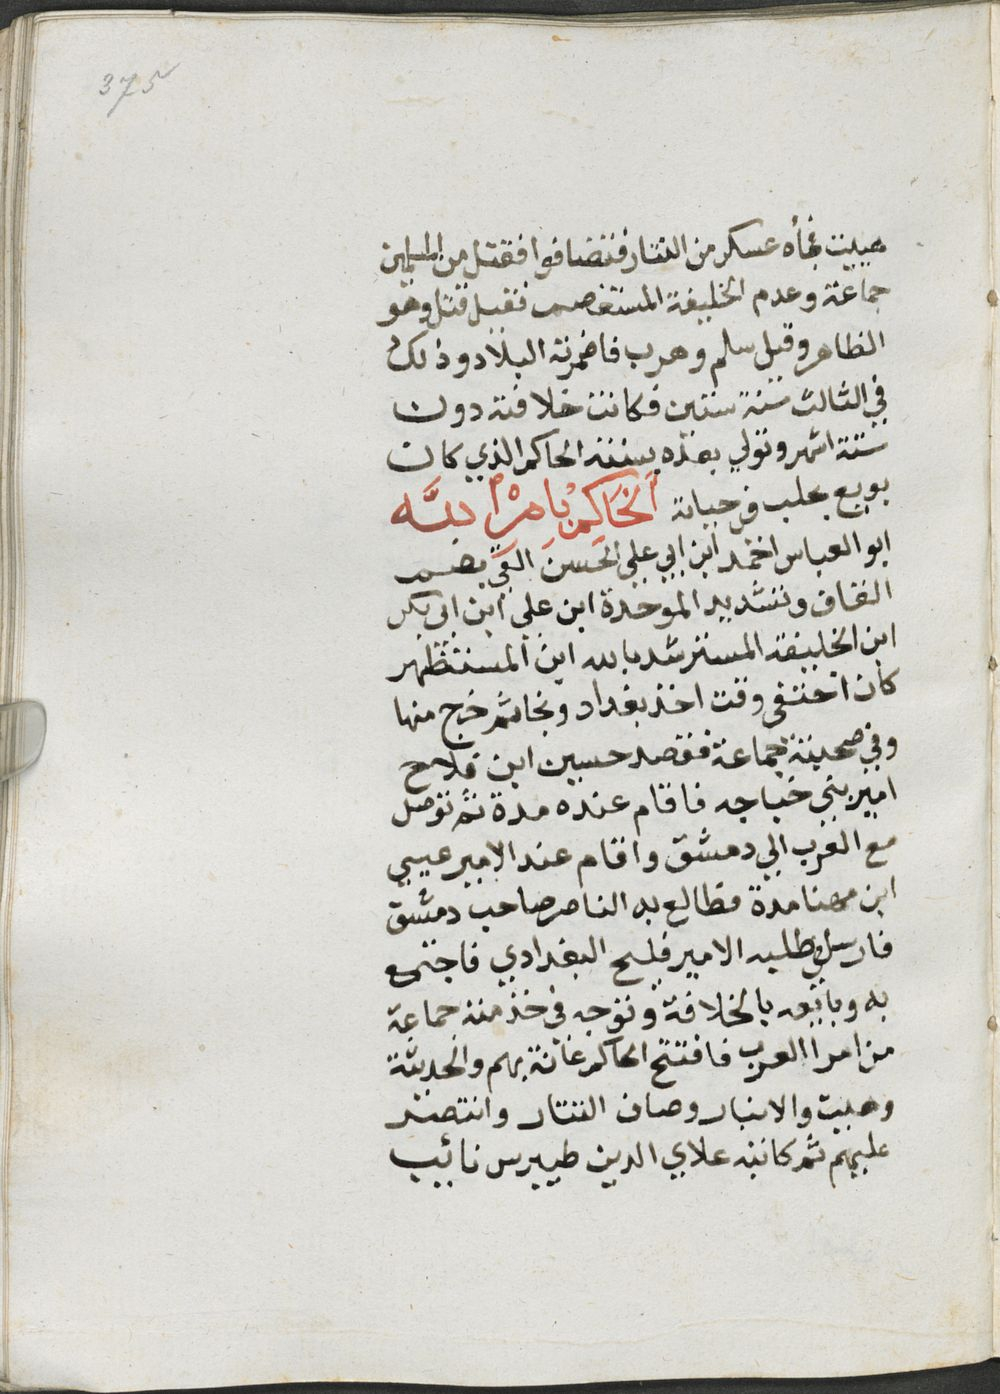 375
هييت فجأه عسكر من التتار فتضافوا فقتل من المسلمين
جماعة وعدم الخليفة المستعصم فقيل قتل وهو
الظاهر وقيل سلم وهرب فاضمرته البلاد وذلك
في الثالث سنة ستين فكانت خلافته دون
ستة اشهر وتولي بعده بسنته الحاكم الذي كان
بويع بحلب في حياته الحاكم بامر الله
ابو العباس احمد ابن ابي علي الحسن القبي بضم
القاف وتشديد الموحدة ابن علي ابن ابي بكر
ابن الخليفه المسترشد بالله ابن المستظهر
كان اختفي وقت اخذ بغداد ونجا ثم خرج منها
وفي صحبته جماعة فقصد حسين ابن فلاح
امير بني خباجه فاقام عنده مدة ثم توصل
مع العرب الي دمشق واقام عند الامير عيسي
ابن مهنا مدة فطالع به الناصر صاحب دمشق
فارسل بطلبه الامير فليح البغدادي فاجتمع
به وبايعه بالخلافة وتوجه في خدمته جماعة
من امرا العرب فافتتح الحاكم غانة بهم والحديثة
وهييت والانبار وصاف التتار وانتصر
عليهم ثم كاتبه علاي الدين طيبرس نائيب